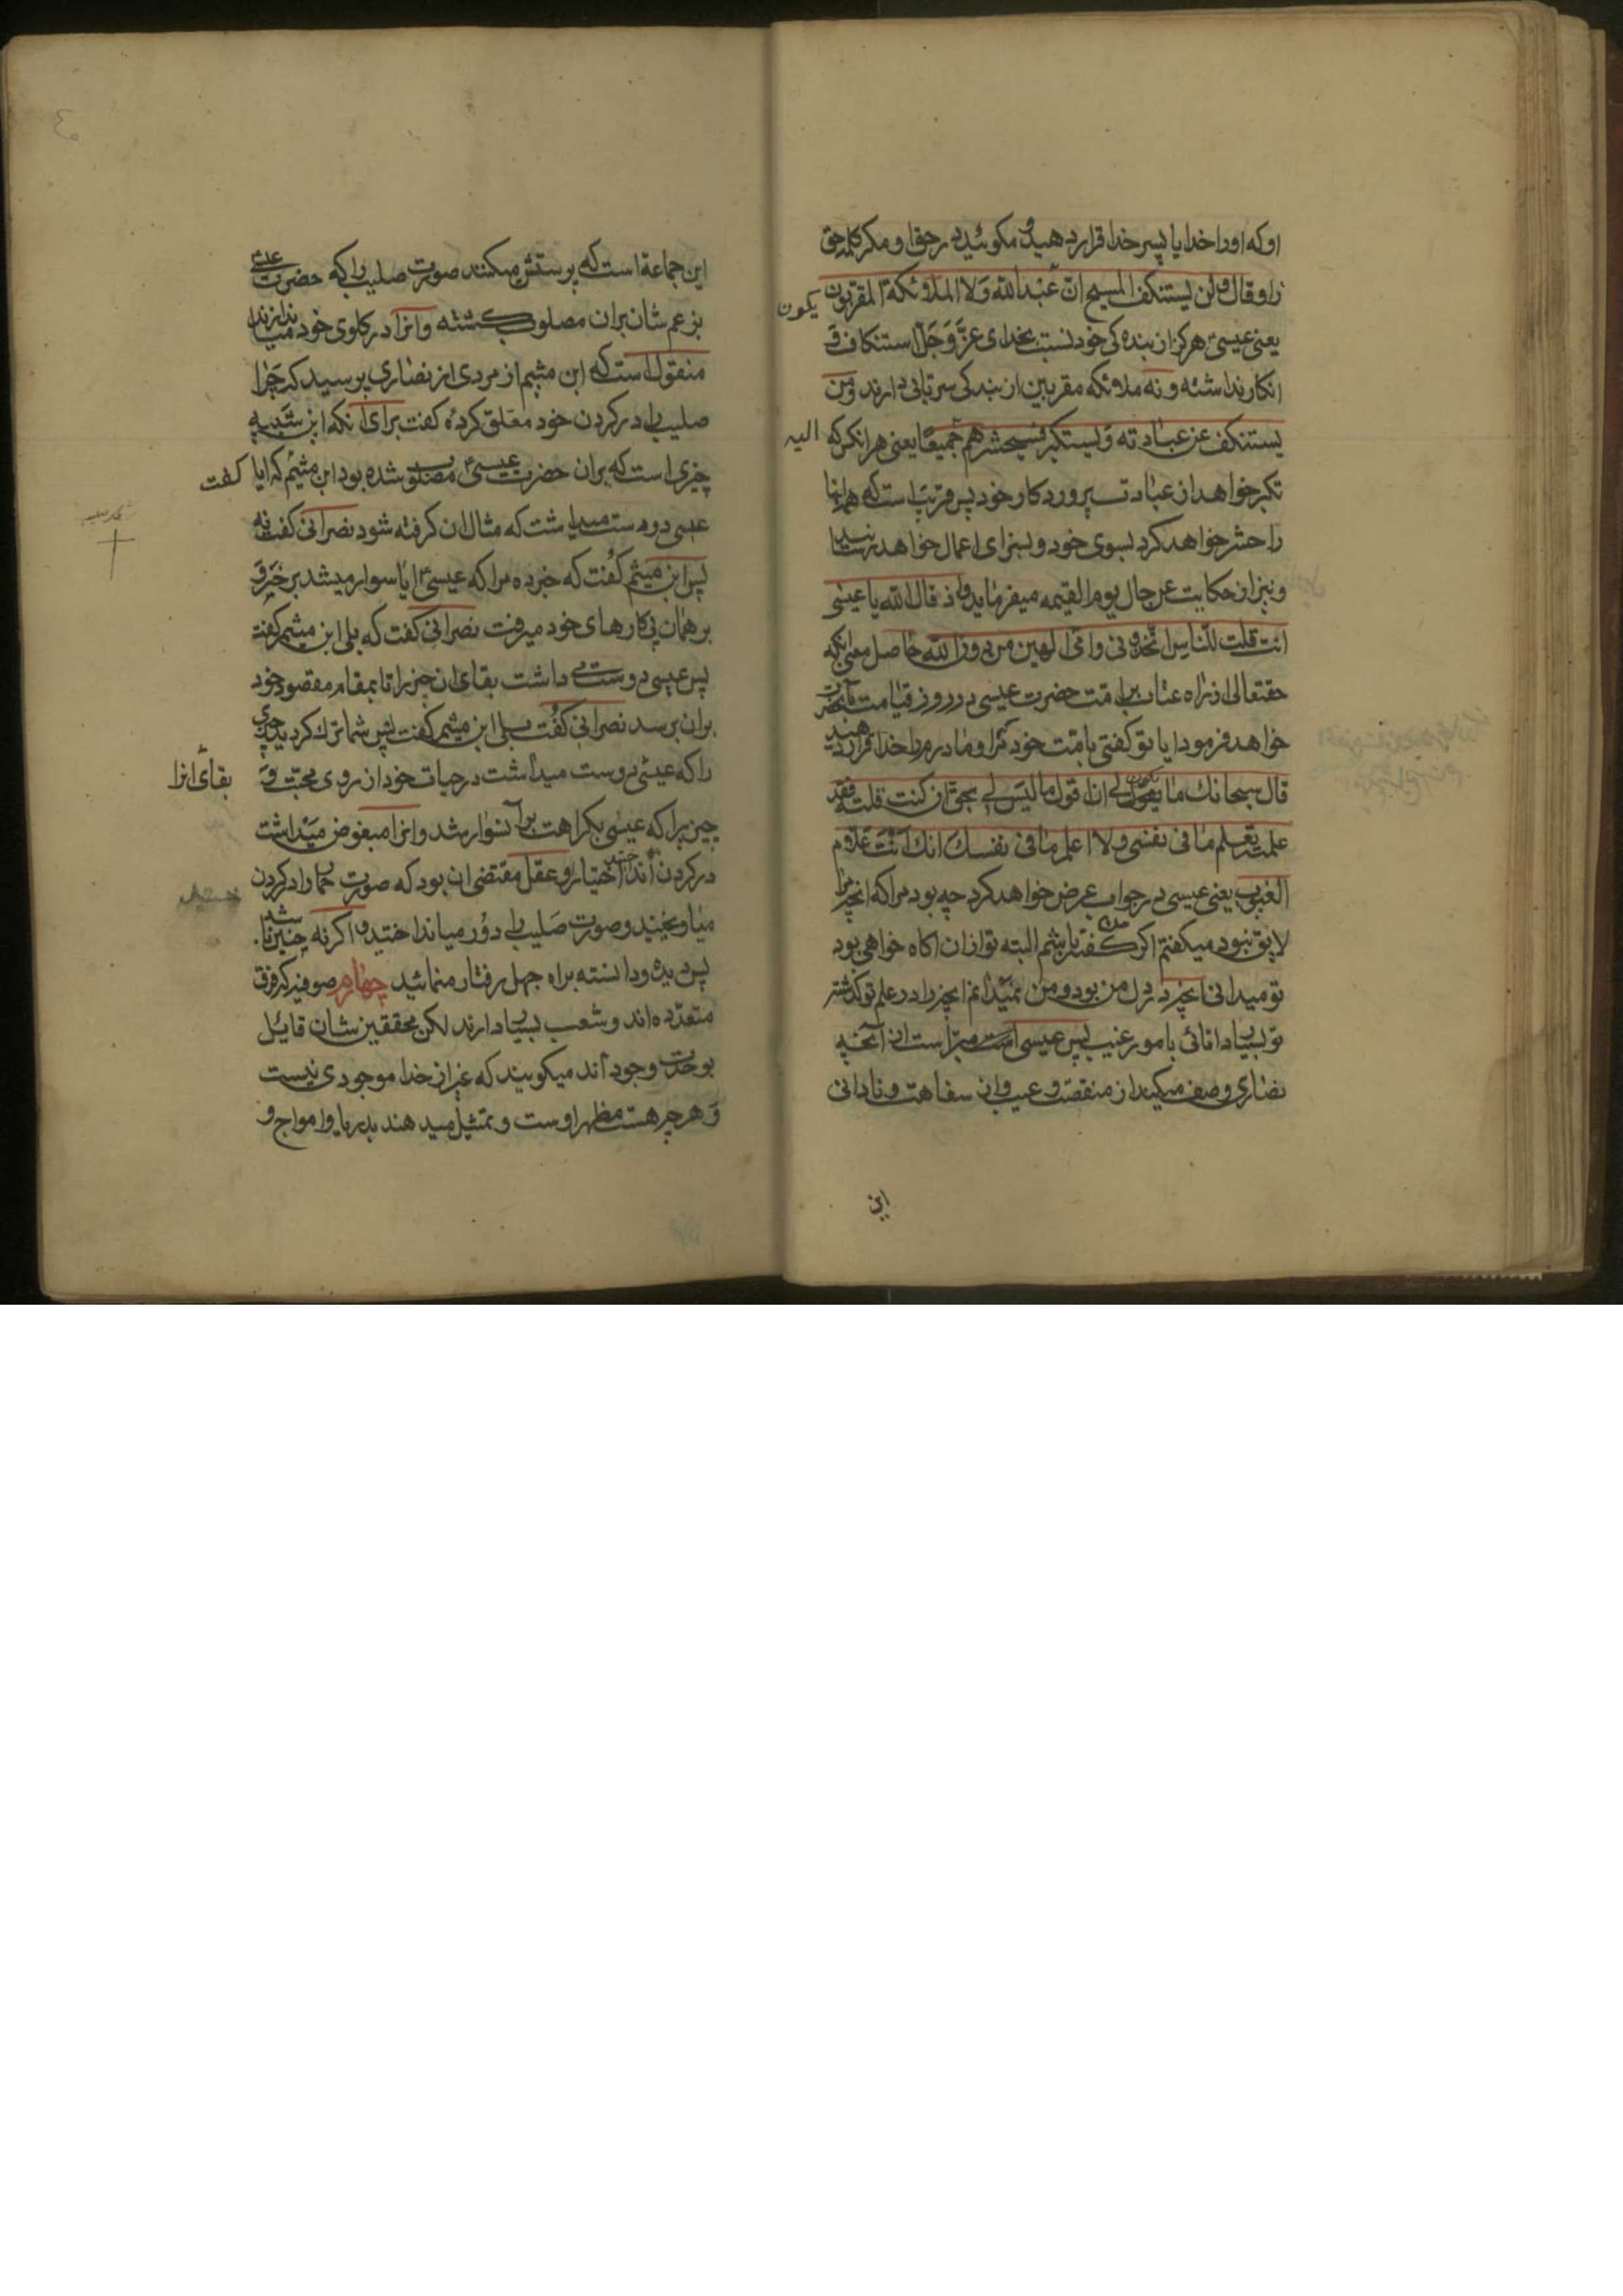 او که او را خدا یا پسر خدا قرار دهید و مگوئید در حق او مگر کلمه حق
را و قال و لن یستنکف المسیح ان عبدالله ولا الملائکة المقربون
یکون
یعنی عیسی هرگز از بنده گی خود نسبت بخدای عزّ و جلّ استنکاف و
انکار نداشته و نه ملائکه مقربین از بندگی سر تابی دارند و من
یستنکف عن عبادته و یستکبر فسیحشرهم جمیعًا یعنی هر انکس که
الیه
تکبر خواهد از عبادت پروردکار خود پس قریب است که همه انها
را حشر خواهد کرد بسوی خود و بسزای اعمال خواهد رسانید
و نیز از حکایت عن حال یوم القیمه میفرماید و اذ قال الله یا عیسی
انت قلت للناس اتخذونی و امی الهین من دون الله حاصل معنی اینکه
حقتعالی از راه عتاب برامّت حضرت عیسی در روز قیامت بآنحضرت
خواهد فرمود ایا تو کفتی بامّت خود که مرا و مادر مرا خدا قرار دهید
قال سبحانک ما یکون لی ان اقول ما لیس لی بحق ان کنت قلته فقد
علمته تعلم ما فی نفسی ولا اعلم ما فی نفسک انک انت علام
الغیوب یعنی عیسی در جواب عرض خواهد کرد چه بود مرا که انچه مرا
لایق نبود میکفتم اکر من کفته باشم البته تو از ان اکاه خواهی بود
تو میدانی انچه در دل من بود و من نمیدانم انچه را در علم تو گذشته
تو بسیار دانائی بامور غیب پس عیسی مبرّاست از آنچه
نصاری وصف میکنند از منقصت و عیب و از سفاهت و نادانی
این
این جماعة است که پرستش میکنند صورت صلیب را که حضرت عیسی
بزعم شان بران مصلوب کشته و انرا در کلوی خود میاندازند
منقول است که ابن مثیم از مردی از نصاری پرسید که چرا
صلیب را در کردن خود معلق کرده کفت برای آنکه این شبیه
چیزی است که بران حضرت عیسی مصلوب شده بود ابن میثم که ایا
کفت
عیسی دوست میداشت که مثال ان کرفته شود نصرانی کفت نه
پس ابن میثم کفت که خبر ده مرا که عیسی ایا سوار میشد بر خر و
بر همان پی کارهای خود میرفت نصرانی کفت که بلی ابن میثم کفت
پس عیسی دوست می داشت بقای ان چیز را تا بمقام مقصود خود
بران برسد نصرانی کفت بلی ابن میثم کفت پس شما ترک کردید چیزی
را که عیسی دوست میداشت در حیات خود از روی محبّت و
بقای انرا
چیزیرا که عیسی بکراهت بر آن سوار شد و انرا مبغوض میداشت
در کردن انداختید و عقل مقتضی ان بود که صورت حمار را در کردن
میاویختید و صورت صلیب را دور میانداختید و اکر نه چنین باشد
پس دیده و دانسته براه جهل رفتار منمائید چهارم صوفیه که فرق
متعدّده اند و شعب بسیار دارند لکن محققین شان قایل
بوحدت وجود اند میکویند که غیر از خدا موجودی نیست
و هر چه هست مظهر اوست و تمثیل میدهند بدریا و امواج و